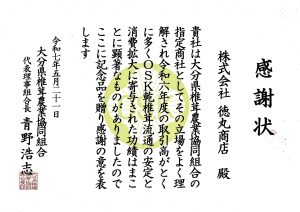 感謝状
株式会社 徳丸商店 殿
貴社は大分県椎茸農業協同組合の
指定商社としてその立場をよく理
解され令和六年度の取引高がとく
に多くOSK乾椎茸流通の安定と
消費拡大に寄与された功績はまこ
とに顕著なものがありましたので
ここに記念品を贈り感謝の意を表
します
令和七年五月二十一日
大分県椎茸農業協同組合
代表理事組合長 青野浩志